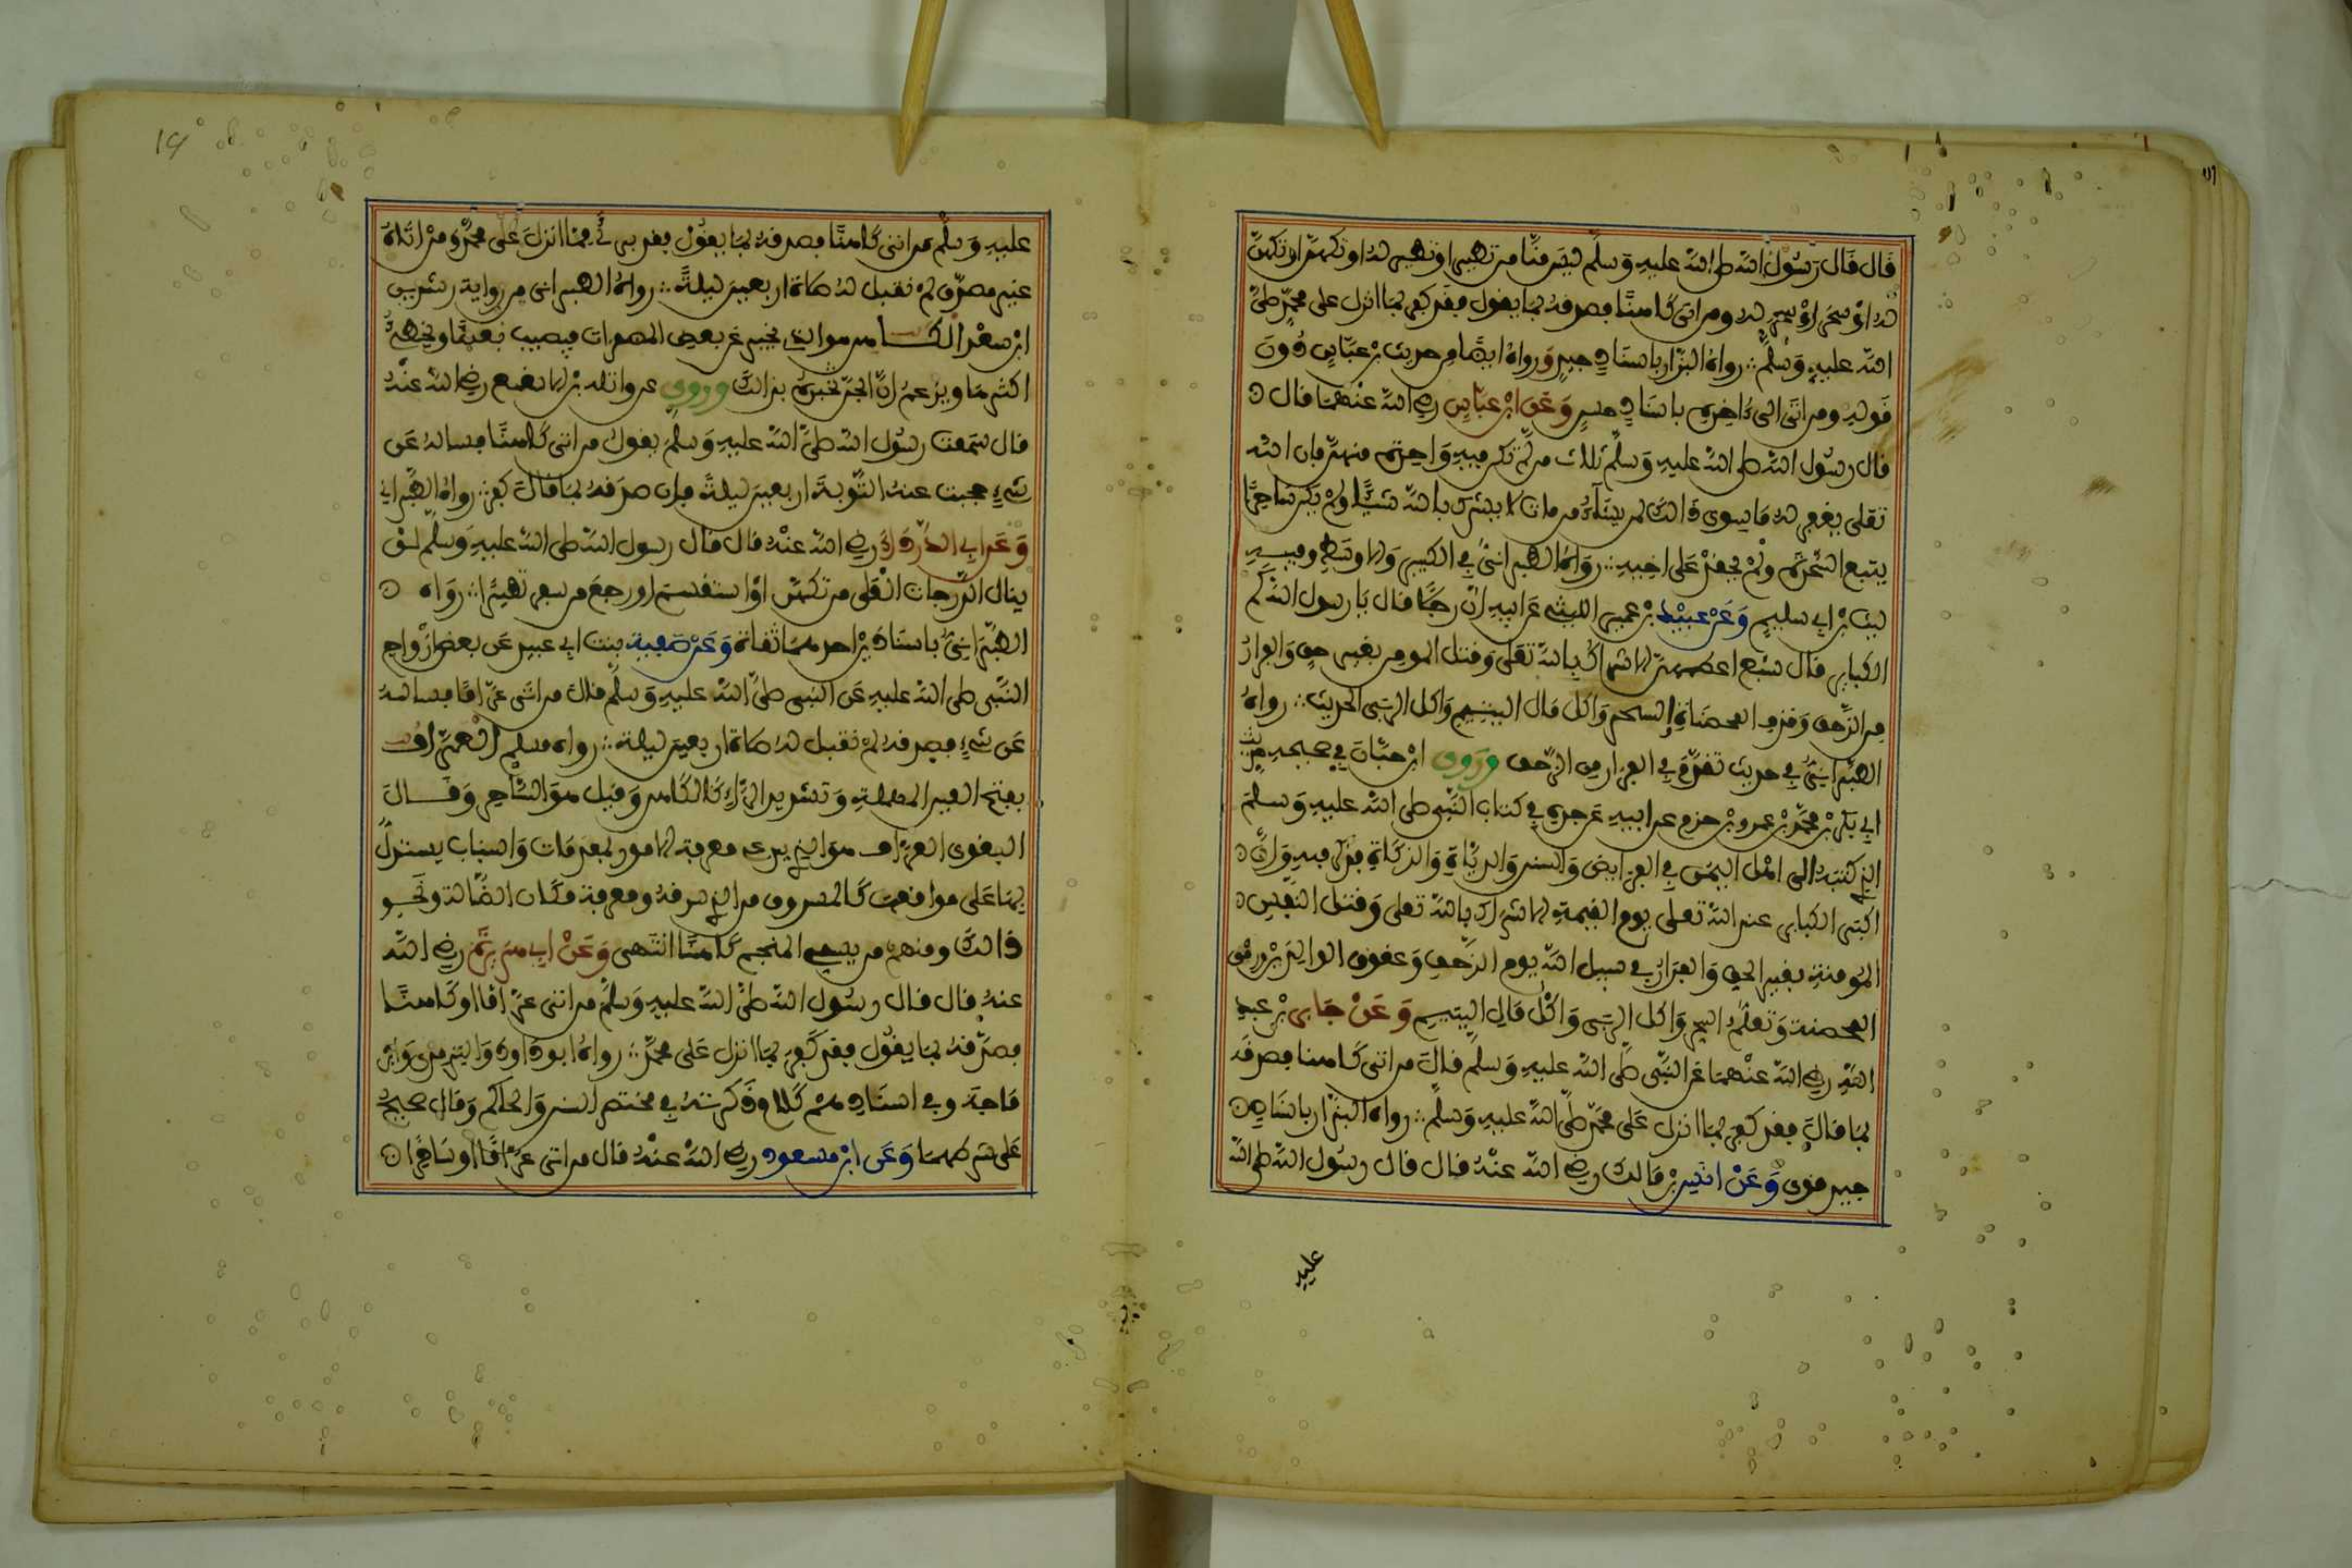 قال قال رسول الله صلى الله عليه وسلم ليس منا من تطير او تطير له او تكهن او تكهن
له او سحر او سحر له ومن اتى كاهنا فصدقه بما يقول فقد كفر بما انزل على محمد صلى
الله عليه وسلم رواه البزار باسناد جيد ورواه الطبراني من حديث ابن عباس دون
قوله ومن اتى الى ءاخره باسناد حسن وعن ابن عباس رضي الله عنهما قال
قال رسول الله صلى الله عليه وسلم ثلاث من لم تكن فيه واحدة منهن فان الله
تعلى يغفر له ما سوى ذالك لمن يشآء من مات لا يشرك بالله شيئا ولم يكن ساحرا
يتبع السحرة ولم يحقد على اخيه رواه الطبراني في الكبير والاوسط وفيه
ليث بن ابي سليم وعن عبيد بن عمير الليثي عن ابيه ان رجلا قال يا رسول الله كم
الكباير قال تسع اعظمهن الاشراك بالله تعلى وقتل المومن بغير حق والفرار
من الزحف وقذف المحصنة والسحر واكل مال اليتيم واكل الربى الحديث رواه
الطبراني في حديث تقدم في الفرار من الزحف وروى ابن حبان في صحيحه من حديث
ابي بكر بن محمد بن عمرو بن حزم عن ابيه عن جده في كتاب النبي صلى الله عليه وسلم
الذي كتبه الى اهل اليمن في الفرايض والسنن والديات والزكاة فذكر فيه وان
اكبر الكباير عند الله تعلى يوم القيمة الاشراك بالله تعلى وقتل النفس
المومنة بغير الحق والفرار في سبيل الله يوم الزحف وعقوق الوالدين ورمي
المحصنة وتعلم السحر واكل الربى واكل مال اليتيم وعن جابر بن عبد
الله رضي الله عنهما عن النبي صلى الله عليه وسلم قال من اتى كاهنا فصدقه
بما قال فقد كفر بما انزل على محمد صلى الله عليه وسلم رواه البزار باسناد
جيد قوي وعن انس بن مالك رضي الله عنه قال قال رسول الله صلى الله
عليه
14
عليه وسلم من اتى كاهنا فصدقه بما يقول فقد برى مما انزل على محمد ومن اتاه
غير مصدق له لم تقبل له صلاة اربعين ليلة رواه الطبراني من رواية رشدين
ابن سعد الكاهن هو الذي يخبر عن بعض المضمرات فيصيب بعضها ويخطئ
اكثرها ويزعم ان الجن تخبره بذالك وروي عن واثلة بن الاسقع رضي الله عنه
قال سمعت رسول الله صلى الله عليه وسلم يقول من اتى كاهنا فساله عن
شيء حجبت عنه التوبة اربعين ليلة فان صدقه بما قال كفر رواه الطبراني
وعن ابي الدرداء رضي الله عنه قال قال رسول الله صلى الله عليه وسلم لن
ينال الدرجات العلى من تكهن او استقسم او رجع من سفر تطيرا رواه
الطبراني باسنادين احدهما ثقات وعن صفية بنت ابي عبيد عن بعض ازواج
النبي صلى الله عليه عن النبي صلى الله عليه وسلم قال من اتى عرافا فساله
عن شيء فصدقه لم تقبل له صلاة اربعين ليلة رواه مسلم العراف
بفتح العين المهملة وتشديد الراء كالكاهن وقيل هو الساحر وقال
البغوي العراف هو الذي يدعي معرفة الامور بمقدمات واسباب يستدل
بها على مواقعها كالمسروق من الذي سرقه ومعرفة مكان الضالة ونحو
ذالك ومنهم من يسمي المنجم كاهنا انتهى وعن ابي هريرة رضي الله
عنه قال قال رسول الله صلى الله عليه وسلم من اتى عرافا او كاهنا
فصدقه بما يقول فقد كفر بما انزل على محمد رواه ابو داود والترمذي وابن
ماجة وفي اسنادهم كلام ذكرته في مختصر السنن والحاكم وقال صحيح
على شرطهما وعن ابن مسعود رضي الله عنه قال من اتى عرافا او ساحرا